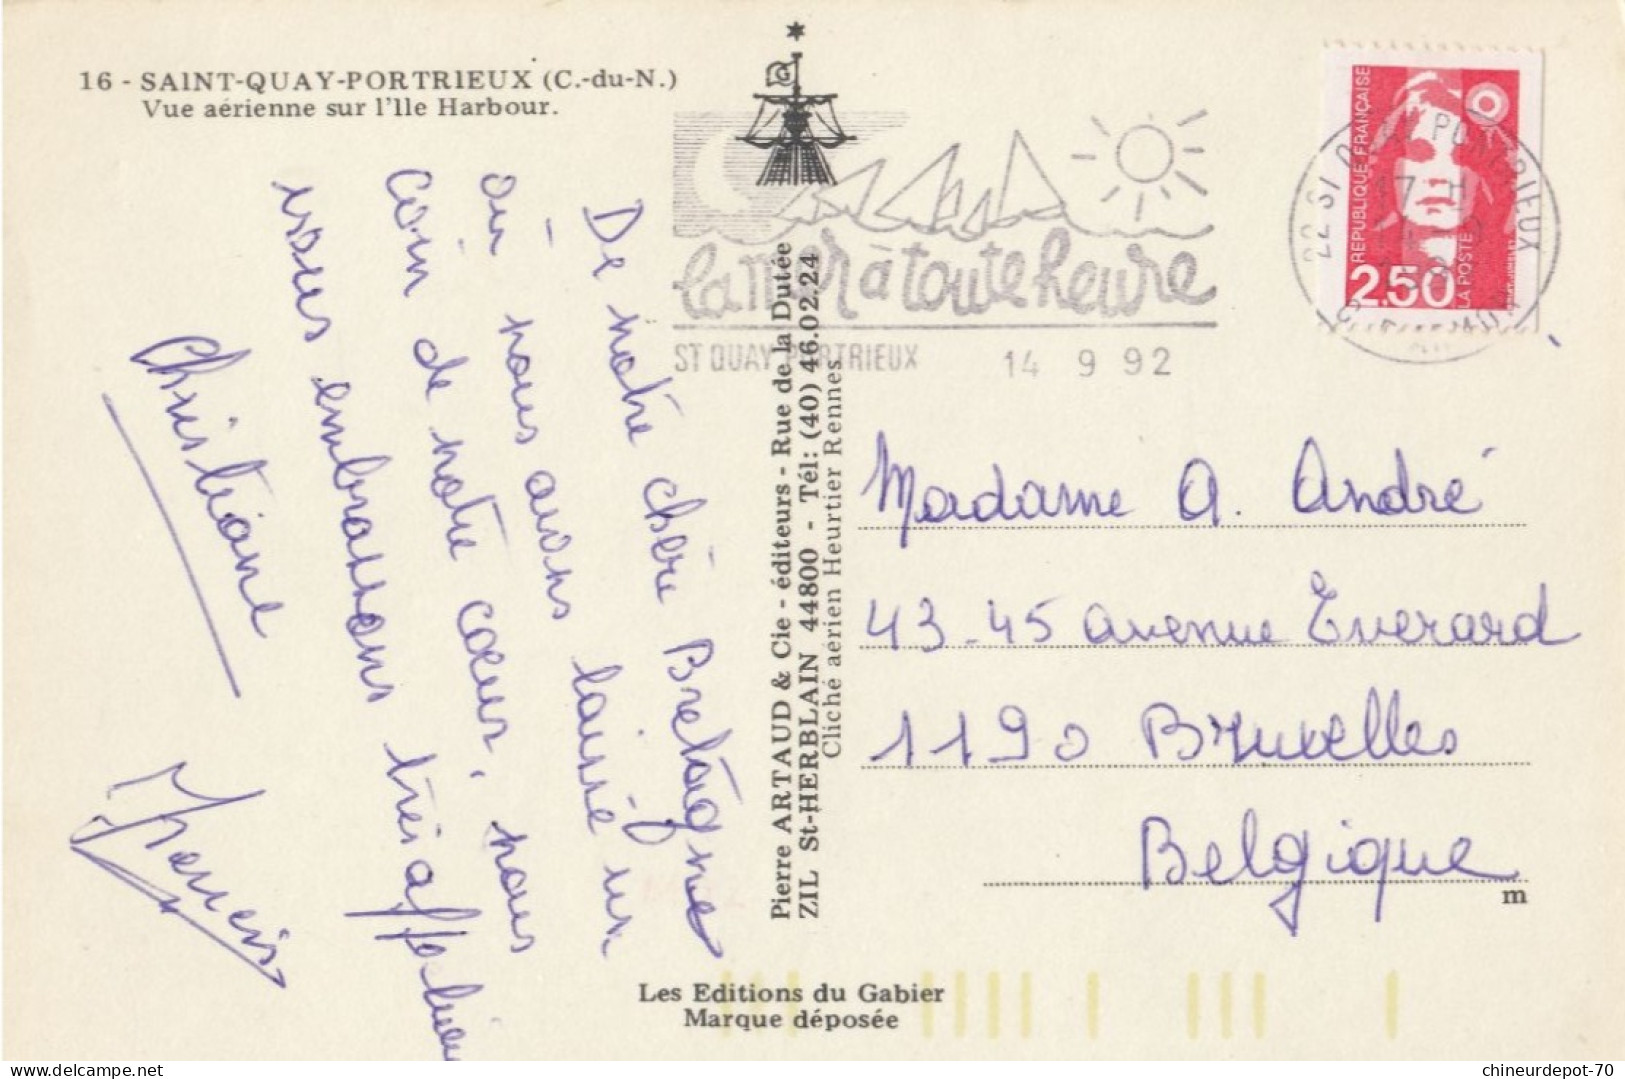 16 - SAINT-QUAY-PORTRIEUX (C.-du-N.)
Vue aérienne sur l'Ile Harbour.
De notre chère Bretagne
où nous avons laissé un
coin de notre coeur, nous
vous embrassons très affectueu
Christiane
la mer à toute heure
ST QUAY PORTRIEUX 14 9 92
22 ST QUAY PORTRIEUX
17 H
REPUBLIQUE FRANÇAISE
2.50
LA POSTE
Pierre ARTAUD & Cie - éditeurs - Rue de la Dutée
ZIL St-HERBLAIN 44800 - Tél: (40) 46.02.24
Cliché aérien Heurtier Rennes
Madame A. André
43-45 avenue Everard
1190 Bruxelles
Belgique
m
Les Editions du Gabier
Marque déposée
chineurdepot-70